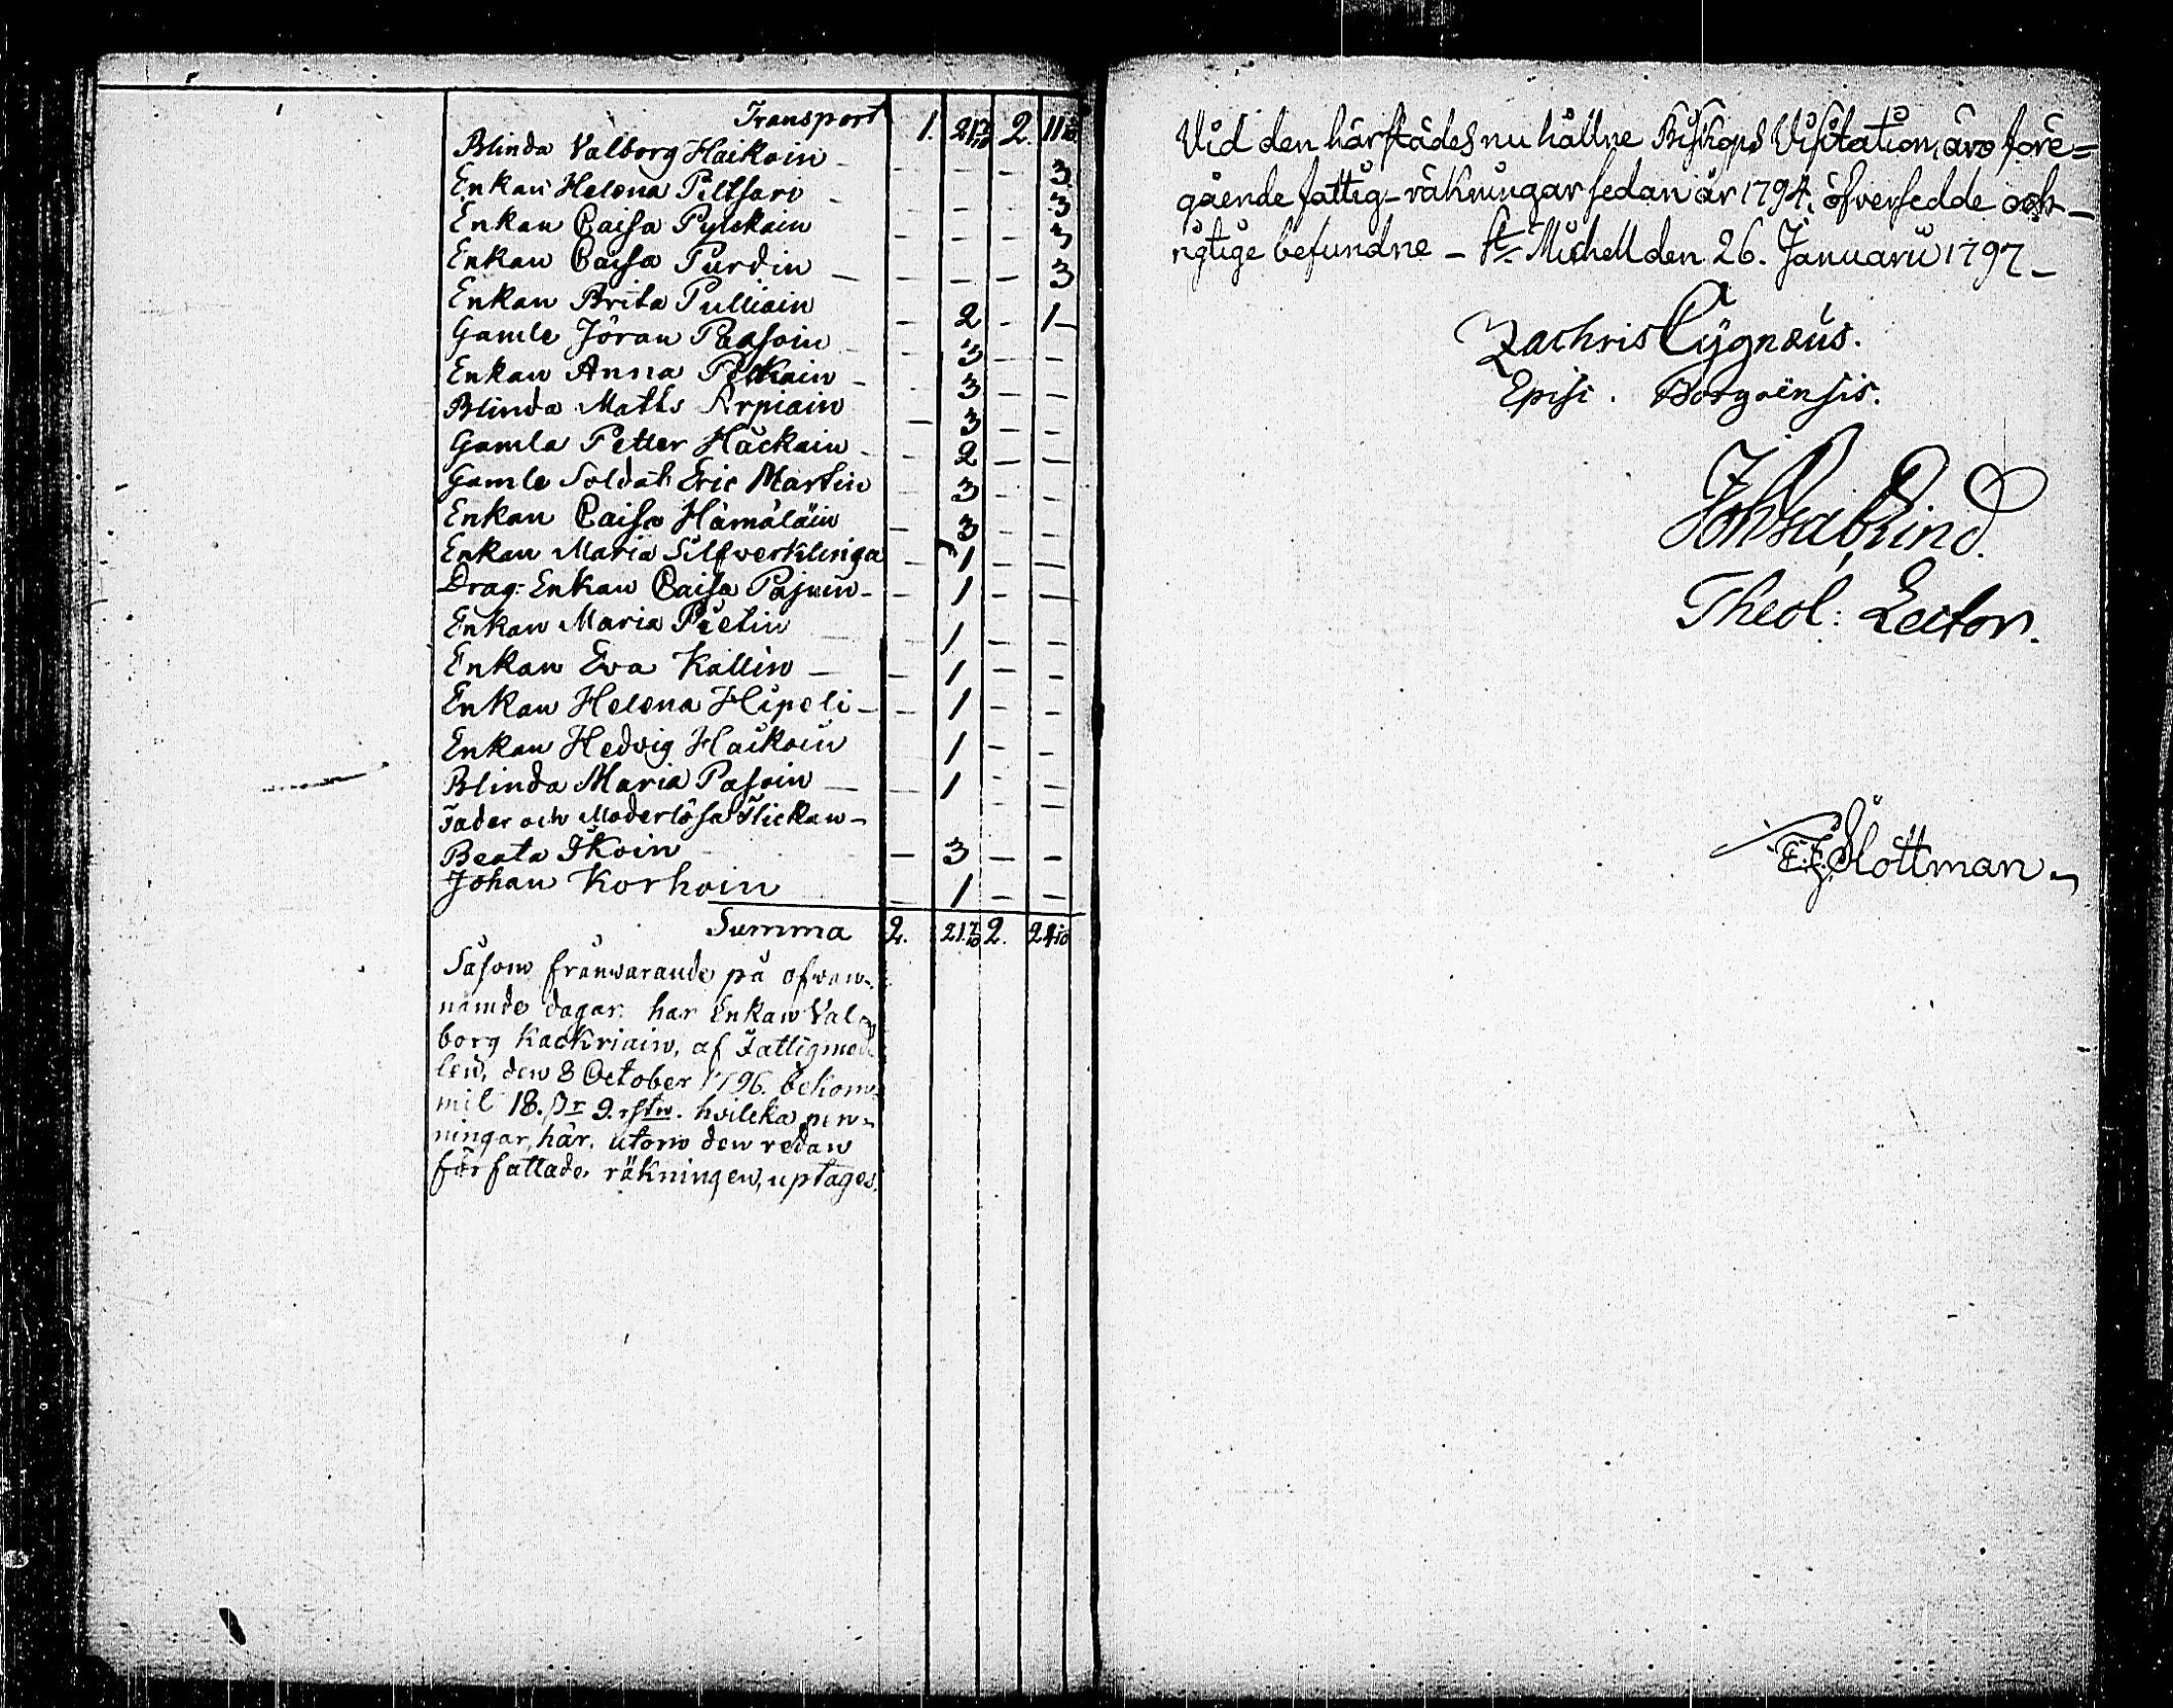 Transport 1. 21 7/10 2. 11 10
Blinda Valborg Haikoin - - - - 3
Enkan Helena Piltsari - - - - 3
Enkan Caisa Pylckain - - - 3
Enkan Caisa Purdin - - - - 3
Enkan Brita Pulliain - 2 - 1-
Gamle Jöran Paasoin - 3 - -
Enkan Anna Pelkain - - 3 - -
Blinda Maths Arpiain - 3 - -
Gamla Petter Häckain - - 2 - -
Gamle Soldat Eric Martin - 3 - -
Enkan Caisa Hämäläin - 3 - -
Enkan Maria Silfwerklinga - 1 - -
Drag: Enkan Caisa Pajuin - - 1 - -
Enkan Maria Pietin 1 - -
Enkan Eva Kallin - - 1 - -
Enkan Helena Hipeli - - 1 - -
Enkan Hedvig Haikoin 1 - -
Blinda Maria Pasoin - - 1 - -
Fader och Moderlösa Flickan - - -
Beata Ikoin - 3 - -
Johan Korhoin - 1 - -
Summa 2. 21 7/10 2. 24 10
Såsom frånwarande på ofwan-
nämde dagar, har Enkan Val-
borg Kackriain, af Fattigmed-
len, den 8 October 1796. bekom-
mit 18. sr 9. rst:n. hvilcka pen-
ningar, här, utom den redan
författade räkningen, uptages.
Vid den härstädes nu hållne Biskops Visitation, äro före=
gående fattig-räkningar sedan år 1794. öfversedde och
rigtige befundne - St. Michell den 26. Januarii 1797 -
Zachris Cygnæus.
Episc. Borgoënsis.
Theol: Lector.
Slottman